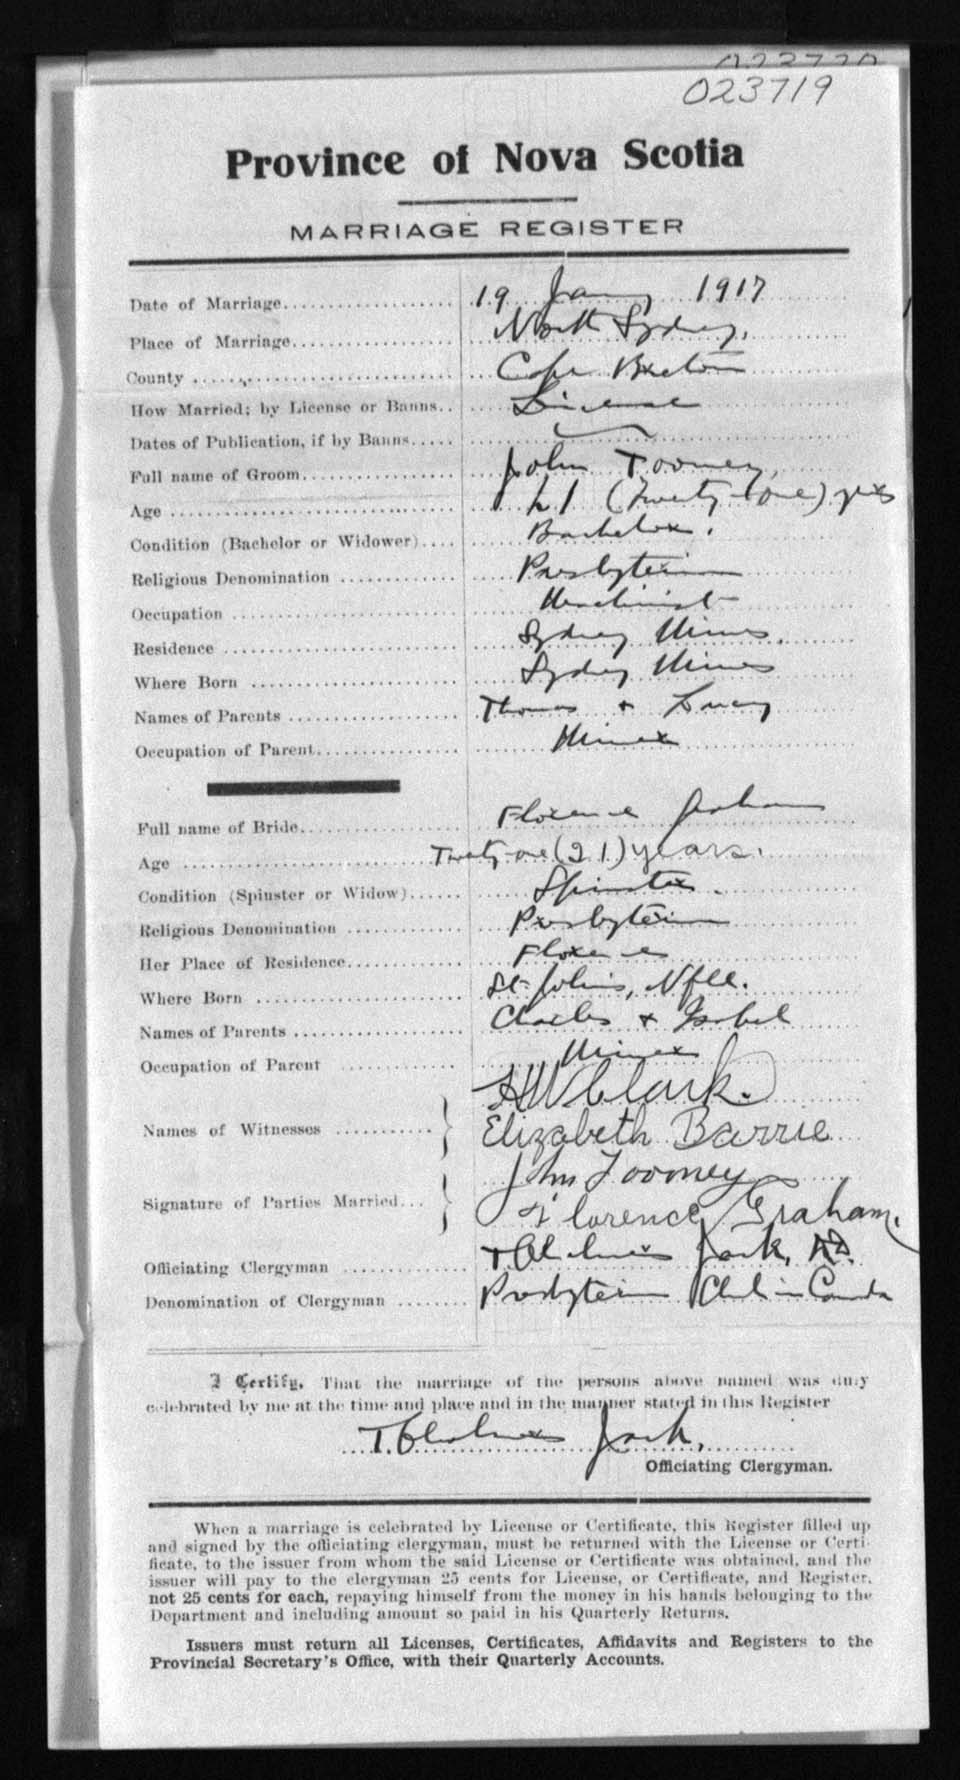 023720
023719
Province of Nova Scotia
MARRIAGE REGISTER
Date of Marriage 19 Jany 1917
Place of Marriage North Sydney.
County Cape Breton
How Married; by License or Banns License
Dates of Publication, if by Banns
Full name of Groom John Toomey,
Age 21 (Twenty-one) yrs
Condition (Bachelor or Widower) Bachelor.
Religious Denomination Presbyterian
Occupation Machinist
Residence Sydney Mines.
Where Born Sydney Mines
Names of Parents Thomas + Lucy
Occupation of Parent Miner
Full name of Bride Florence Graham
Age Twenty-one (21) years.
Condition (Spinster or Widow) Spinster.
Religious Denomination Presbyterian
Her Place of Residence Florence
Where Born St. John's, Nfld.
Names of Parents Charles + Isabel
Occupation of Parent Miner
H W Clark.
Names of Witnesses
Elizabeth Barrie
John Toomey
Signature of Parties Married
Florence Graham.
Officiating Clergyman T. Chalmers Jack, DD.
Denomination of Clergyman Presbyterian Ch in Canada
I Certify, That the marriage of the persons above named was duly
celebrated by me at the time and place and in the manner stated in this Register
T. Chalmers Jack,
Officiating Clergyman.
When a marriage is celebrated by License or Certificate, this Register filled up
and signed by the officiating clergyman, must be returned with the License or Certi-
ficate, to the issuer from whom the said License or Certificate was obtained, and the
issuer will pay to the clergyman 25 cents for License, or Certificate, and Register,
not 25 cents for each, repaying himself from the money in his hands belonging to the
Department and including amount so paid in his Quarterly Returns.
Issuers must return all Licenses, Certificates, Affidavits and Registers to the
Provincial Secretary's Office, with their Quarterly Accounts.